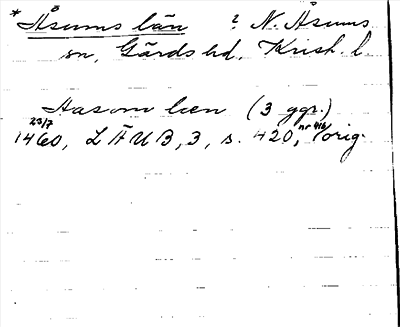 * Åsums län ? N. Åsums
sn, Gärds hd, Krist. l.
Aasom læn (3 ggr.)
23/7
1460, LÄUB, 3, s. 420, nr 416, orig.